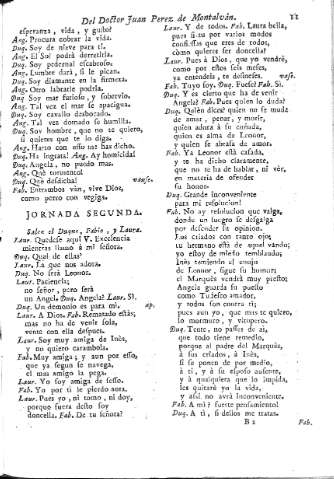 Del Doctor Juan Perez de Montalván. 11
esperanza, vida, y gusto?
Ang. Procura cobrar la vida.
Duq. Soy de nieve para el.
Ang. El Sol podrá derretirla.
Duq. Soy pedernal escabroso.
Ang. Lumbre dará, si le pican.
Duq. Soy diamante en la firmeza.
Ang. Otro labrarle podria.
Duq. Soy mar furioso, y sobervio.
Ang. Tal vez el mar se apacigua.
Duq. Soy cavallo desbocado.
Ang. Tal vez domarse humilla.
Duq. Soy hombre, que no te quiero,
si quieres que te lo diga.
Ang. Harto con esso me has dicho.
Duq. Ha ingrata! Ang. Ay homicida!
Duq. Angela, no puedo mas.
Ang. Qué tormento!
Duq. Qué desdicha! vanse.
Fab. Entrambos van, vive Dios,
como perro con vegiga.
JORNADA SEGUNDA.
Salen el Duque, Fabio, y Laura.
Laur. Quedese aqui V. Excelencia
mientras llamo á mi señora.
Duq. Qual de ellas?
Laur. La que nos adora.
Duq. No será Leonor.
Laur. Paciencia;
no señor, pero será
un Angel. Duq. Angela? Laur. Sí.
Duq. Un demonio es para mí. ap.
Laur. A Dios. Fab. Rematado estás;
mas no ha de verte sola,
vente con ella despues.
Laur. Soy muy amiga de Inés,
y no quiero carambola.
Fab. Muy amiga; y aun por esso,
que ya segun se navega,
el mas amigo la pega.
Laur. Yo soy amiga de sesso.
Fab. Yo por tí le pierdo aora.
Laur. Pues yo, ni tomo, ni doy,
porque fuera desto soy
doncella. Fab. De tu señora?
Laur. Y de todos. Fab. Laura bella,
pues si tu por varios modos
confiessas que eres de todos,
cómo quieres ser doncella?
Laur. Pues á Dios, que yo vendré,
como por estos seis meses,
ya entendela, te dixesses. vase.
Fab. Tuyo soy. Duq. Fuese? Fab. Sí.
Duq. Y es cierto que ha de venir
Angela? Fab. Pues quien lo duda?
Duq. Quién dices? quien no se muda
de amar, penar, y morir,
quien adora á su cuñada,
quien es alma de Leonor,
y quien se abrasa de amor.
Fab. Ya Leonor está casada,
y te ha dicho claramente,
que no te ha de hablar, ni vér,
en materia de ofender
su honor.
Duq. Grande inconveniente
para mi resolucion!
Fab. No ay resolucion que valga,
donde un suegro se desgalga
por defender su opinion.
Los criados con tanto ojo;
tu hermano está de aquel vando;
yo estoy de miedo temblando;
Inés temiendo el enojo
de Leonor, sigue su humor;
el Marqués vendrá muy presto;
Angela guarda su puesto
como Tudesco amador,
y todos son contra tí;
pues aun yo, que mas te quiero,
lo murmuro, y vitupero.
Duq. Tente, no passes de aí,
que todo tiene remedio,
porque al padre del Marqués,
á sus criados, á Inés,
si se ponen de por medio,
á tí, y á su esposo ausente,
y á qualquiera que lo impida,
les quitaré yo la vida,
y assi no avrá inconveniente.
Fab. A mí? fuerte pensamiento!
Duq. A tí, si dellos me tratas.
B 2 Fab.